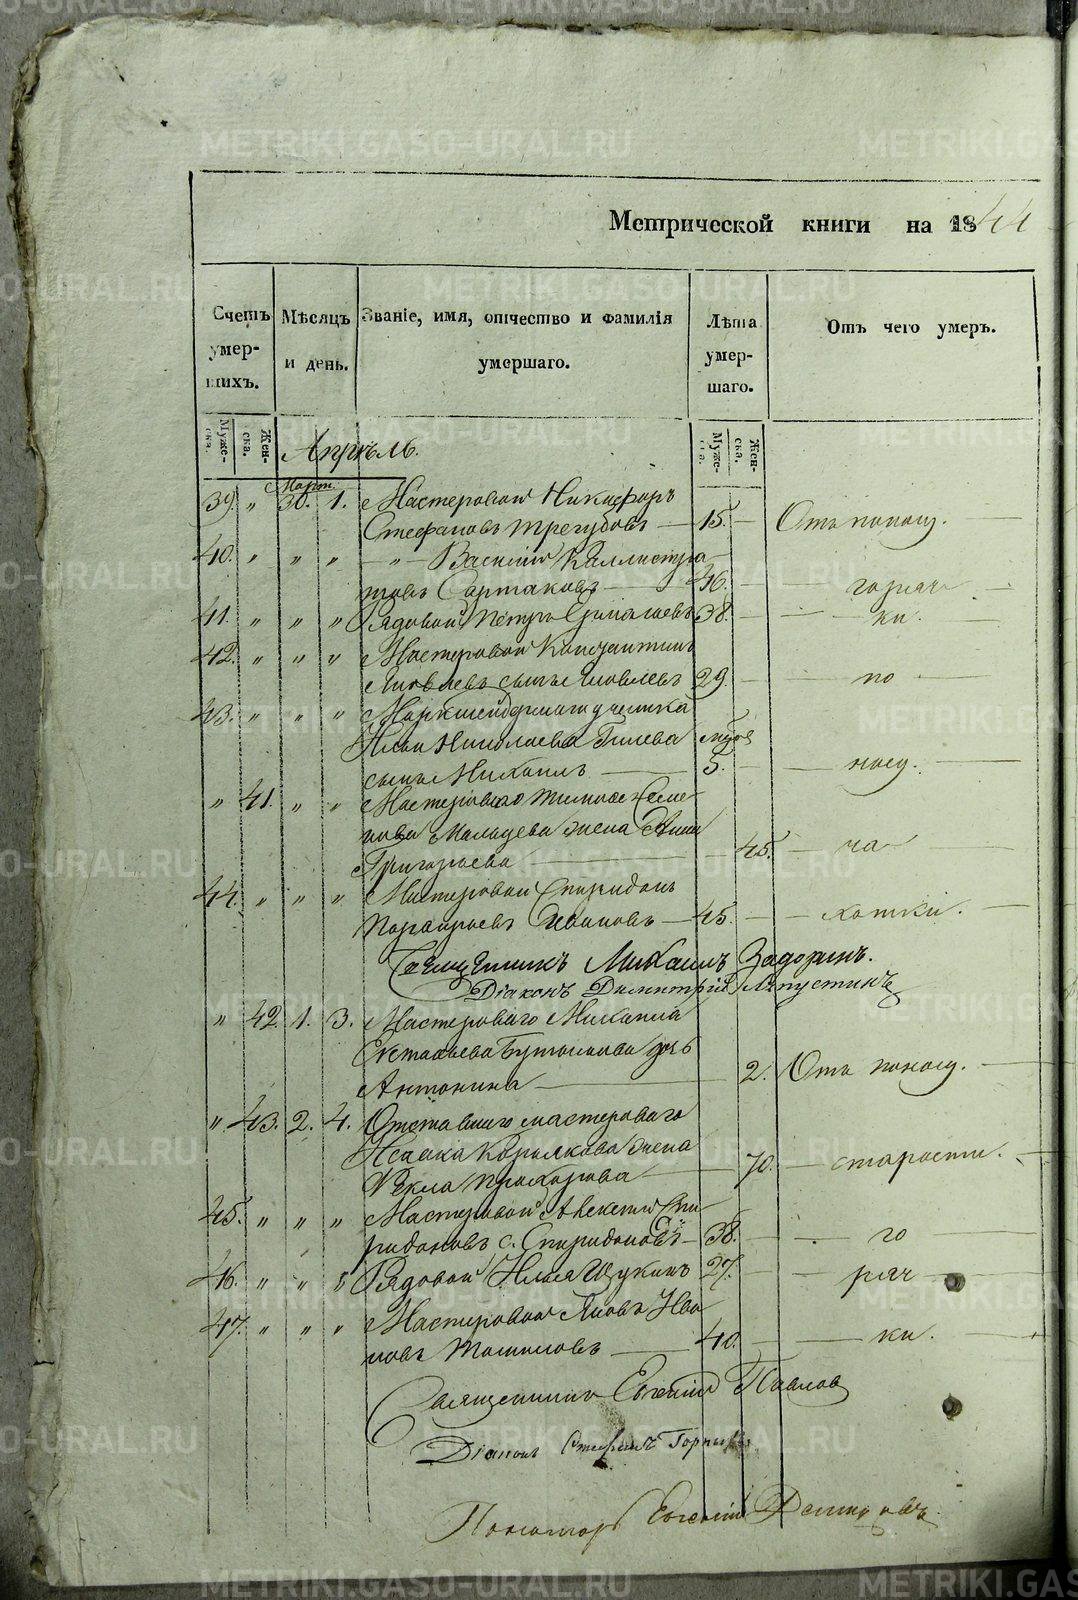 Метрической книги на 1844
Счетъ умер-шихъ.
Мѣсяцъ и день.
Званіе, имя, отчество и фамилія умершаго.
Лѣта умер-шаго.
Отъ чего умеръ.
Муже-ска. Жен-ска.
Муже-ска. Жен-ска.
Апрѣль.
Март.
39. " 30. 1. Мастеровой Никифоръ
Стефановъ Трегубовъ — 15. — Отъ понош.
40. " " " — " — Василій Каллистра-
товъ Сартаковъ — 46. — горяч
41. " " " Рядовой Петръ Ермолаевъ 38. — ки.
42. " " " Мастеровой Константинъ
Яковлевъ сынъ Яковлевъ 29. — по
43. " " " Маркшейдерскаго ученика
Ильи Николаева Гилева
сынъ Михаилъ — 5. —
" 41. " " Мастероваго Тимофея Семе-
нова Мальцева жена Анна
Григорьева — 45. — ча
44. " " " Мастеровой Спиридонъ
Порфирьевъ Ивановъ — 45. — — хотки.
Священникъ Михаилъ Задоринъ.
Діаконъ Димитрій Ляпустинъ
" 42. 1. 3. Мастероваго Михаила
Евстафьева дочь
Антонина — 2. Отъ понош.
" 43. 2. 4. Отставнаго мастероваго
Исаака Королкова жена
Ѳекла Прохорова — 70. — старости.
45. " " " Мастеровой Алексей Спи
ридоновъ с. Спиридоновъ — 38. — го
46. " " " Рядовой Илья Щукинъ 27. — ряч
47. " " " Мастеровой Яковъ Ива
новъ Томиловъ — 40. — ки.
Священникъ Евгеній Павлов
Діаконъ Стефанъ
Пономарь Евгеній
METRIKI.GASO-URAL.RU